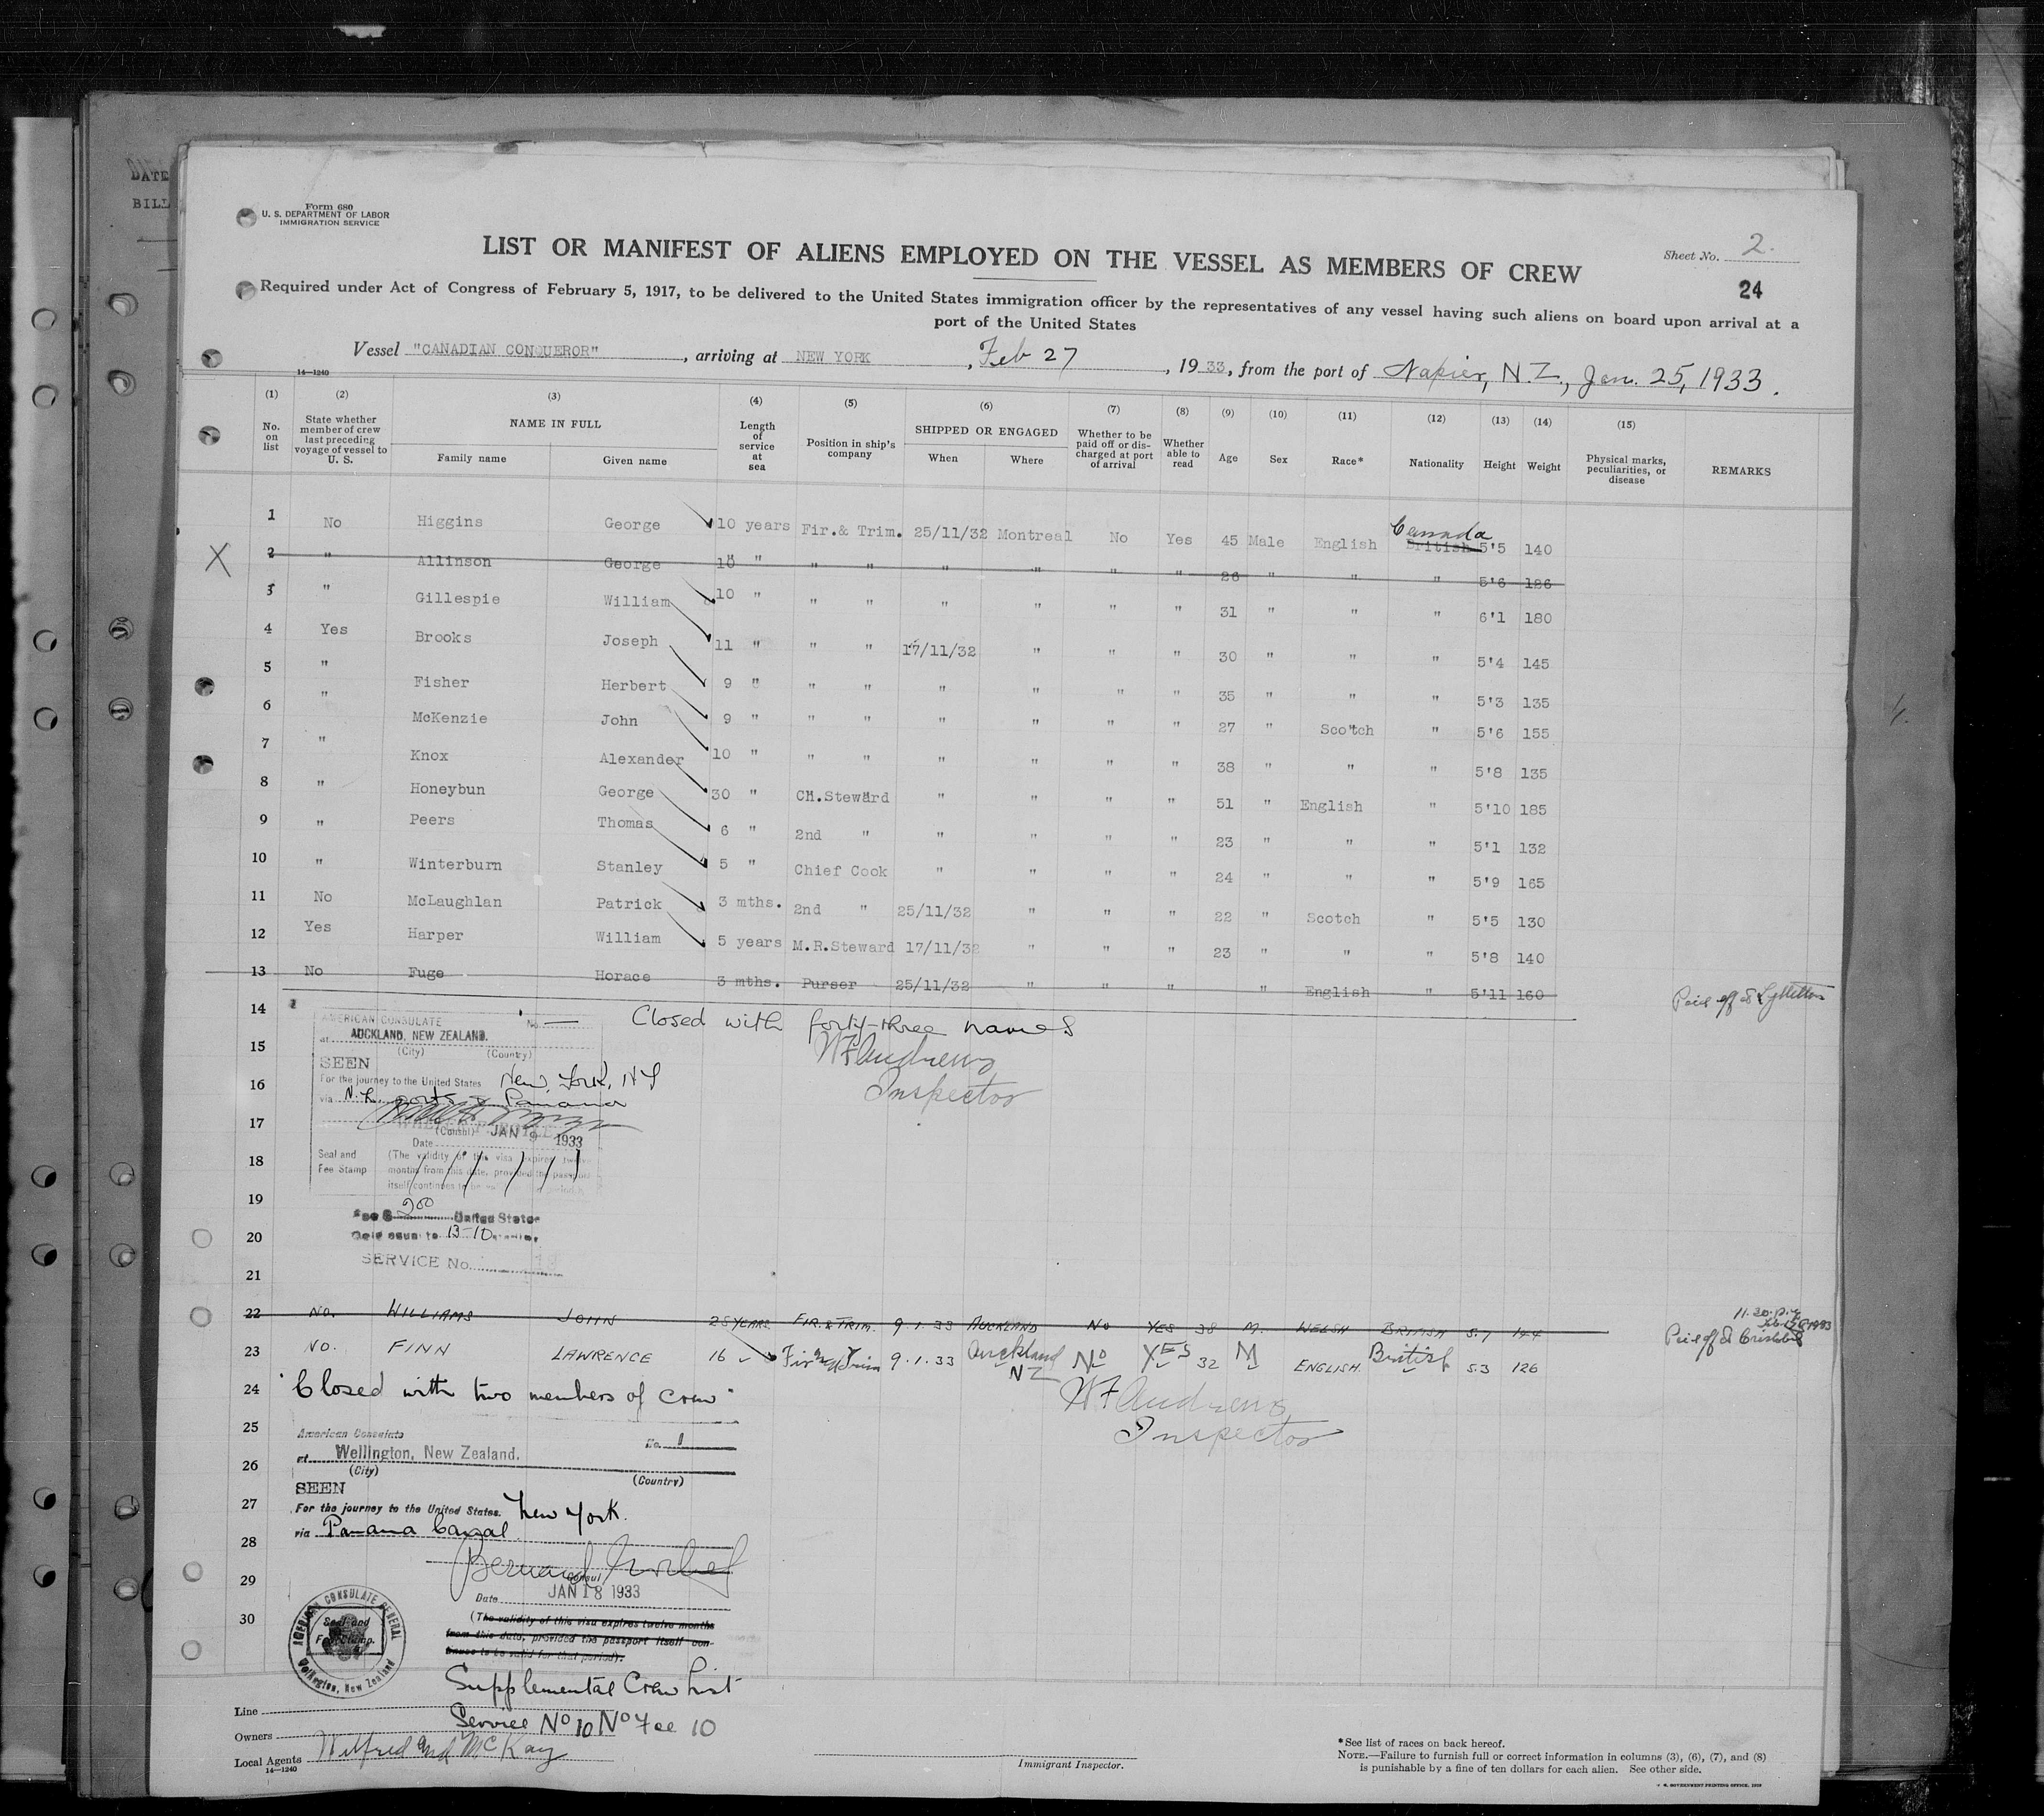 DATE
BILL
Form 680
U. S. DEPARTMENT OF LABOR
IMMIGRATION SERVICE
LIST OR MANIFEST OF ALIENS EMPLOYED ON THE VESSEL AS MEMBERS OF CREW
Sheet No. 2.
24
Required under Act of Congress of February 5, 1917, to be delivered to the United States immigration officer by the representatives of any vessel having such aliens on board upon arrival at a
port of the United States
Vessel "CANADIAN CONQUEROR", arriving at NEW YORK, Feb 27, 1933, from the port of Napier, N.Z., Jan. 25, 1933.
14—1240
(1) (2) (3) (4) (5) (6) (7) (8) (9) (10) (11) (12) (13) (14) (15)
No. on list State whether member of crew last preceding voyage of vessel to U. S. NAME IN FULL Family name Given name Length of service at sea Position in ship's company SHIPPED OR ENGAGED When Where Whether to be paid off or discharged at port of arrival Whether able to read Age Sex Race* Nationality Height Weight Physical marks, peculiarities, or disease REMARKS
1 No Higgins George 10 years Fir.& Trim. 25/11/32 Montreal No Yes 45 Male English British Canada 5'5 140
X 2 " Allinson George 10 " " " " " " " 26 " " " 5'6 186
3 " Gillespie William 10 " " " " " " " 31 " " " 6'1 180
4 Yes Brooks Joseph 11 " " " 17/11/32 " " " 30 " " " 5'4 145
5 " Fisher Herbert 9 " " " " " " " 35 " " " 5'3 135
6 " McKenzie John 9 " " " " " " " 27 " Scotch " 5'6 155
7 " Knox Alexander 10 " " " " " " " 38 " " " 5'8 135
8 " Honeybun George 30 " CH.Steward " " " " 51 " English " 5'10 185
9 " Peers Thomas 6 " 2nd " " " " " 23 " " " 5'1 132
10 " Winterburn Stanley 5 " Chief Cook " " " " 24 " " " 5'9 165
11 No McLaughlan Patrick 3 mths. 2nd " 25/11/32 " " " 22 " Scotch " 5'5 130
12 Yes Harper William 5 years M.R.Steward 17/11/32 " " " 23 " " " 5'8 140
13 No Fuge Horace 3 mths. Purser 25/11/32 " " " " English " 5'11 160 Paid off at Lyttelton
14 Closed with forty-three names
AMERICAN CONSULATE No.
at AUCKLAND, NEW ZEALAND.
(City) (Country)
15 WF Andrews
SEEN
16 Inspector
For the journey to the United States New York, NY
via N.Z. ports & Panama
17
(Consul)
Date JAN 9 1933
18
Seal and Fee Stamp
(The validity of this visa expires twelve
months from this date, provided the passport
itself continues to be
19
Fee $ 200 United States
20
Gold equal to 13-10
SERVICE No.
21
22 NO. WILLIAMS JOHN 25 YEARS. FIR. & TRIM. 9.1.33 AUCKLAND NO YES 38 M. WELSH BRITISH 5.7 144
Paid off at Cristobal
23 NO. FINN LAWRENCE 16 Fir and Trim 9.1.33 Auckland NZ No YES 32 M ENGLISH. British 5.3 126
24 "Closed with two members of crew"
WF Andrews
Inspector
25
American Consulate No. 1
at Wellington, New Zealand.
26 (City) (Country)
SEEN
27 For the journey to the United States. New York.
via Panama Canal
28
Bernard
29 Consul
Date JAN 18 1933
30 (The validity of this visa expires twelve months
from this date, provided the passport itself con-
tinues to be valid for that period).
AMERICAN CONSULATE GENERAL
Seal and
Fee Stamp.
Wellington, New Zealand
Supplemental Crew List
Service No 10 No Fee 10
Line
Owners
Local Agents Wilfred and McKay
14—1240
Immigrant Inspector.
*See list of races on back hereof.
NOTE.—Failure to furnish full or correct information in columns (3), (6), (7), and (8)
is punishable by a fine of ten dollars for each alien. See other side.
U. S. GOVERNMENT PRINTING OFFICE